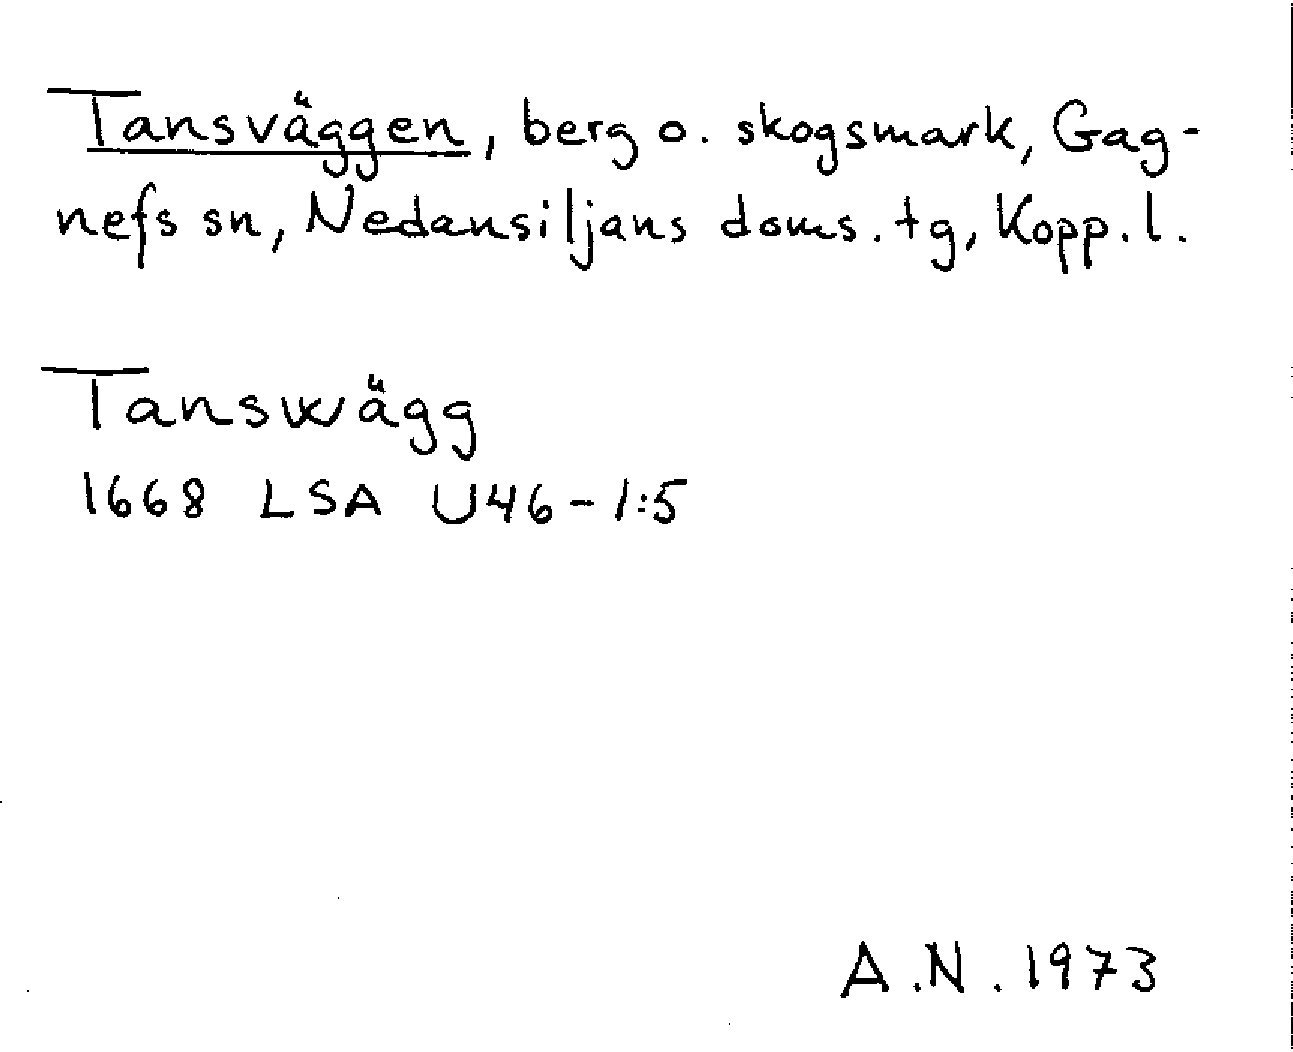 Tansväggen, berg o. skogsmark, Gag-
nefs sn, Nedansiljans doms. tg, Kopp. l.
Tanswägg
1668 LSA U46-1:5
A.N. 1973